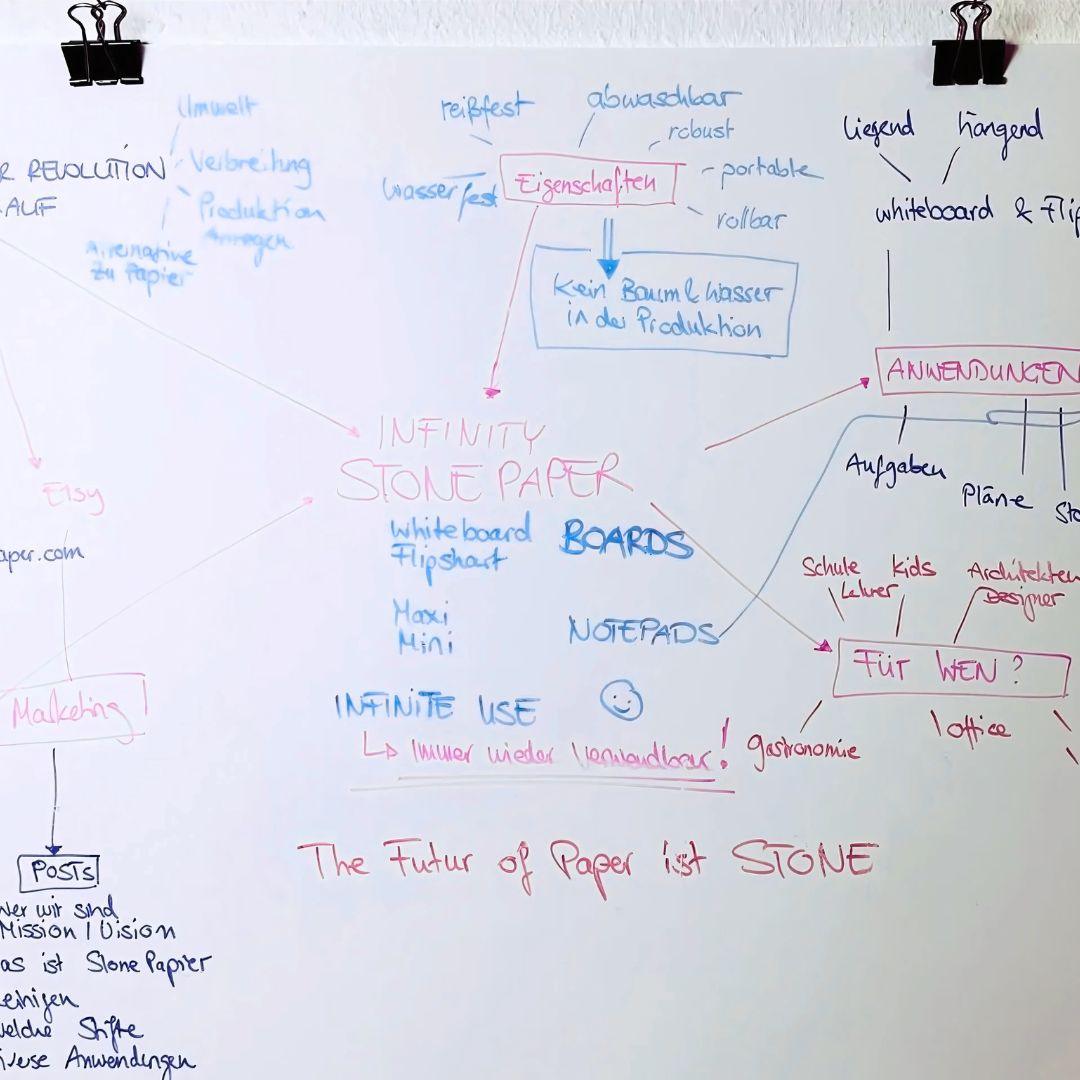 Umwelt
R REVOLUTION
AUF
Verbreitung
Produktion
Anregen
Alternative
zu Papier
reißfest
abwaschbar
robust
portable
rollbar
wasserfest
Eigenschaften
Kein Baum & Wasser
in der Produktion
liegend
hängend
whiteboard & Flip
ANWENDUNGEN
Aufgaben
Pläne
INFINITY
STONE PAPER
whiteboard
Flipshart
BOARDS
Maxi
Mini
NOTEPADS
INFINITE USE
↳ Immer wieder Verwendbar!
The Futur of Paper ist STONE
Etsy
aper.com
Marketing
POSTS
wer wir sind
Mission / Vision
as ist Stone Papier
einigen
welche Stifte
iverse Anwendungen
Schule
Lehrer
Kids
Architekten
Designer
FÜR WEN ?
gastronomie
office